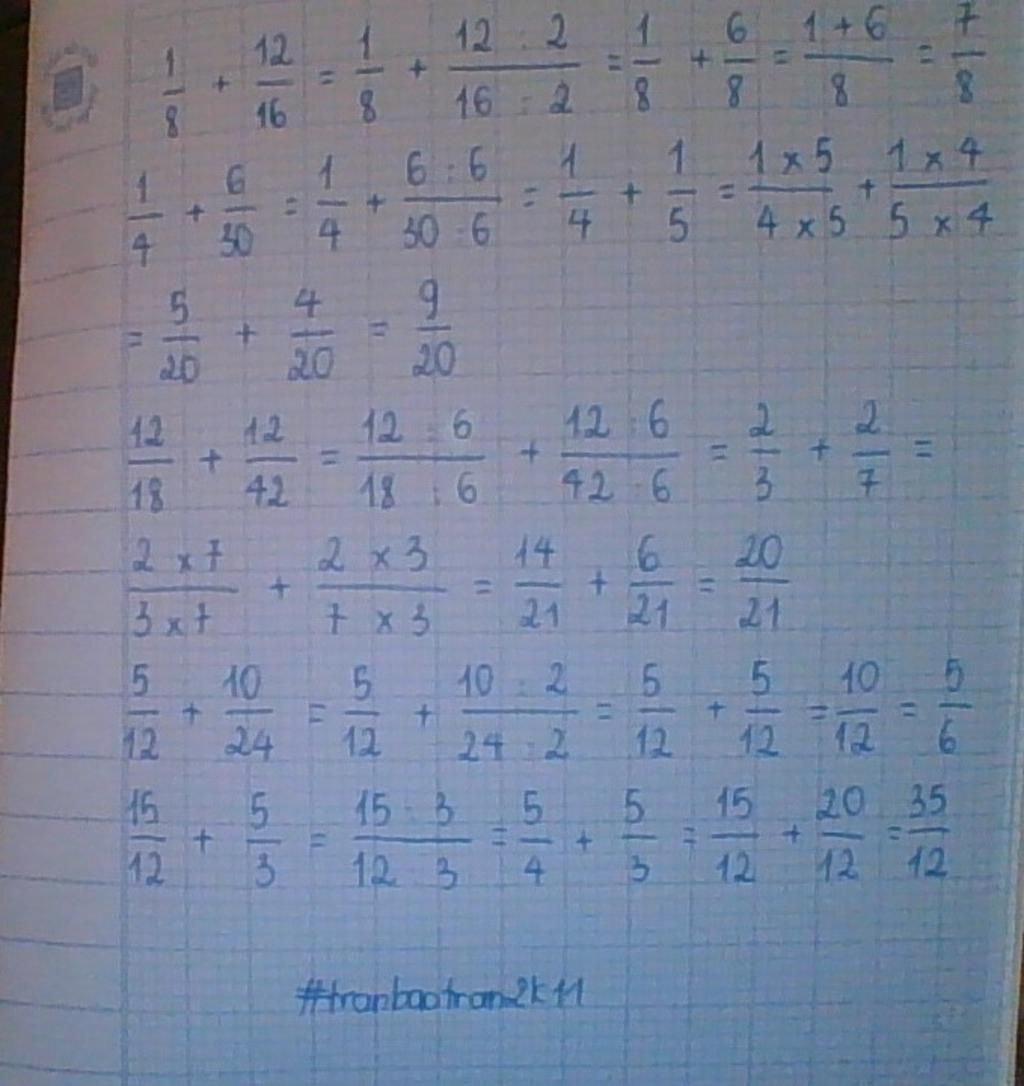 1/8 + 12/16 = 1/8 + 12 : 2/16 : 2 = 1/8 + 6/8 = 1 + 6/8 = 7/8
1/4 + 6/30 = 1/4 + 6 : 6/30 : 6 = 1/4 + 1/5 = 1 x 5/4 x 5 + 1 x 4/5 x 4
= 5/20 + 4/20 = 9/20
12/18 + 12/42 = 12 : 6/18 : 6 + 12 : 6/42 : 6 = 2/3 + 2/7 =
2 x 7/3 x 7 + 2 x 3/7 x 3 = 14/21 + 6/21 = 20/21
5/12 + 10/24 = 5/12 + 10 : 2/24 : 2 = 5/12 + 5/12 = 10/12 = 5/6
15/12 + 5/3 = 15 : 3/12 : 3 = 5/4 + 5/3 = 15/12 + 20/12 = 35/12
#tranbaotran2k11